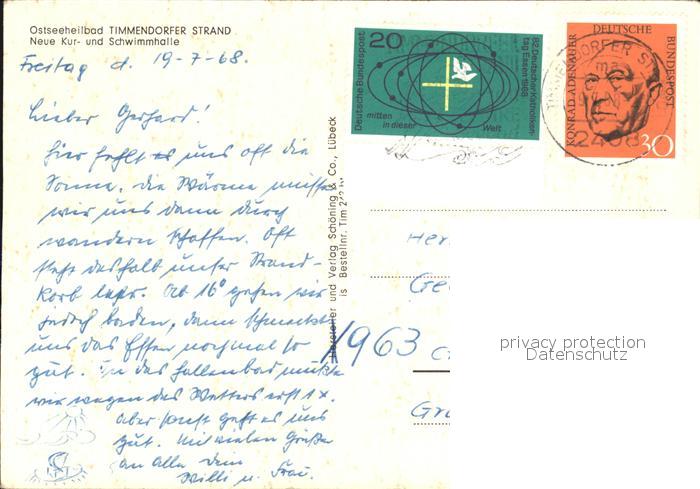 Ostseeheilbad TIMMENDORFER STRAND
Neue Kur- und Schwimmhalle
Freitag d. 19-7-68.
Lieber Gerhard!
Hier fehlt es uns oft die
Sonne. die Wärme müssen
wir uns dann durch
wandern schaffen. Oft
steht deshalb unser Strand-
korb leer. Ab 16° gehen wir
jedoch baden, dann schmeckt
uns das Essen nochmal so
gut. In das Hallenbad mußten
wir wegen des Wetters erst 1x.
aber sonst geht es uns
gut. Mit vielen Grüßen
an alle Dein
Willi u. Frau.
Hersteller und Verlag Schöning & Co., Lübeck
Bestellnr. Tim
20
Deutsche Bundespost
82. Deutscher Katholiken-
tag Essen 1968
mitten
in dieser
Welt
KONRAD ADENAUER
DEUTSCHE
BUNDESPOST
30
TIMMENDORFER ST
2408
Her
Ge
1963
Gr
privacy protection
Datenschutz